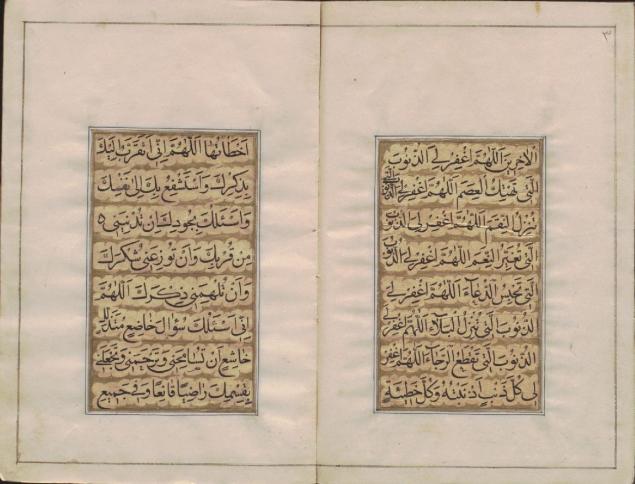 ٣
اَلْاٰخِرِينَ اَللّٰهُمَّ اغْفِرْ لِيَ الذُّنُوبَ
الَّتِي تَهْتِكُ الْعِصَمَ اَللّٰهُمَّ اغْفِرْ لِيَ الذُّنُوبَ الَّتِي
تُنْزِلُ النِّقَمَ اَللّٰهُمَّ اغْفِرْ لِيَ الذُّنُوبَ
الَّتِي تُغَيِّرُ النِّعَمَ اَللّٰهُمَّ اغْفِرْ لِيَ الذُّنُوبَ
الَّتِي تَحْبِسُ الدُّعَاءَ اَللّٰهُمَّ اغْفِرْ لِيَ
الذُّنُوبَ الَّتِي تُنْزِلُ الْبَلَاءَ اَللّٰهُمَّ اغْفِرْ لِيَ
الذُّنُوبَ الَّتِي تَقْطَعُ الرَّجَاءَ اَللّٰهُمَّ اغْفِرْ
لِي كُلَّ ذَنْبٍ اَذْنَبْتُهُ وَكُلَّ خَطِيئَةٍ
اَخْطَاْتُهَا اَللّٰهُمَّ اِنِّي اَتَقَرَّبُ اِلَيْكَ
بِذِكْرِكَ وَاَسْتَشْفِعُ بِكَ اِلٰى نَفْسِكَ
وَاَسْئَلُكَ بِجُودِكَ اَنْ تُدْنِيَنِي
مِنْ قُرْبِكَ وَاَنْ تُوزِعَنِي شُكْرَكَ
وَاَنْ تُلْهِمَنِي ذِكْرَكَ اَللّٰهُمَّ
اِنِّي اَسْئَلُكَ سُؤَالَ خَاضِعٍ مُتَذَلِّلٍ
خَاشِعٍ اَنْ تُسَامِحَنِي وَتَرْحَمَنِي وَتَجْعَلَنِي
بِقِسْمِكَ رَاضِيًا قَانِعًا وَفِي جَمِيعِ